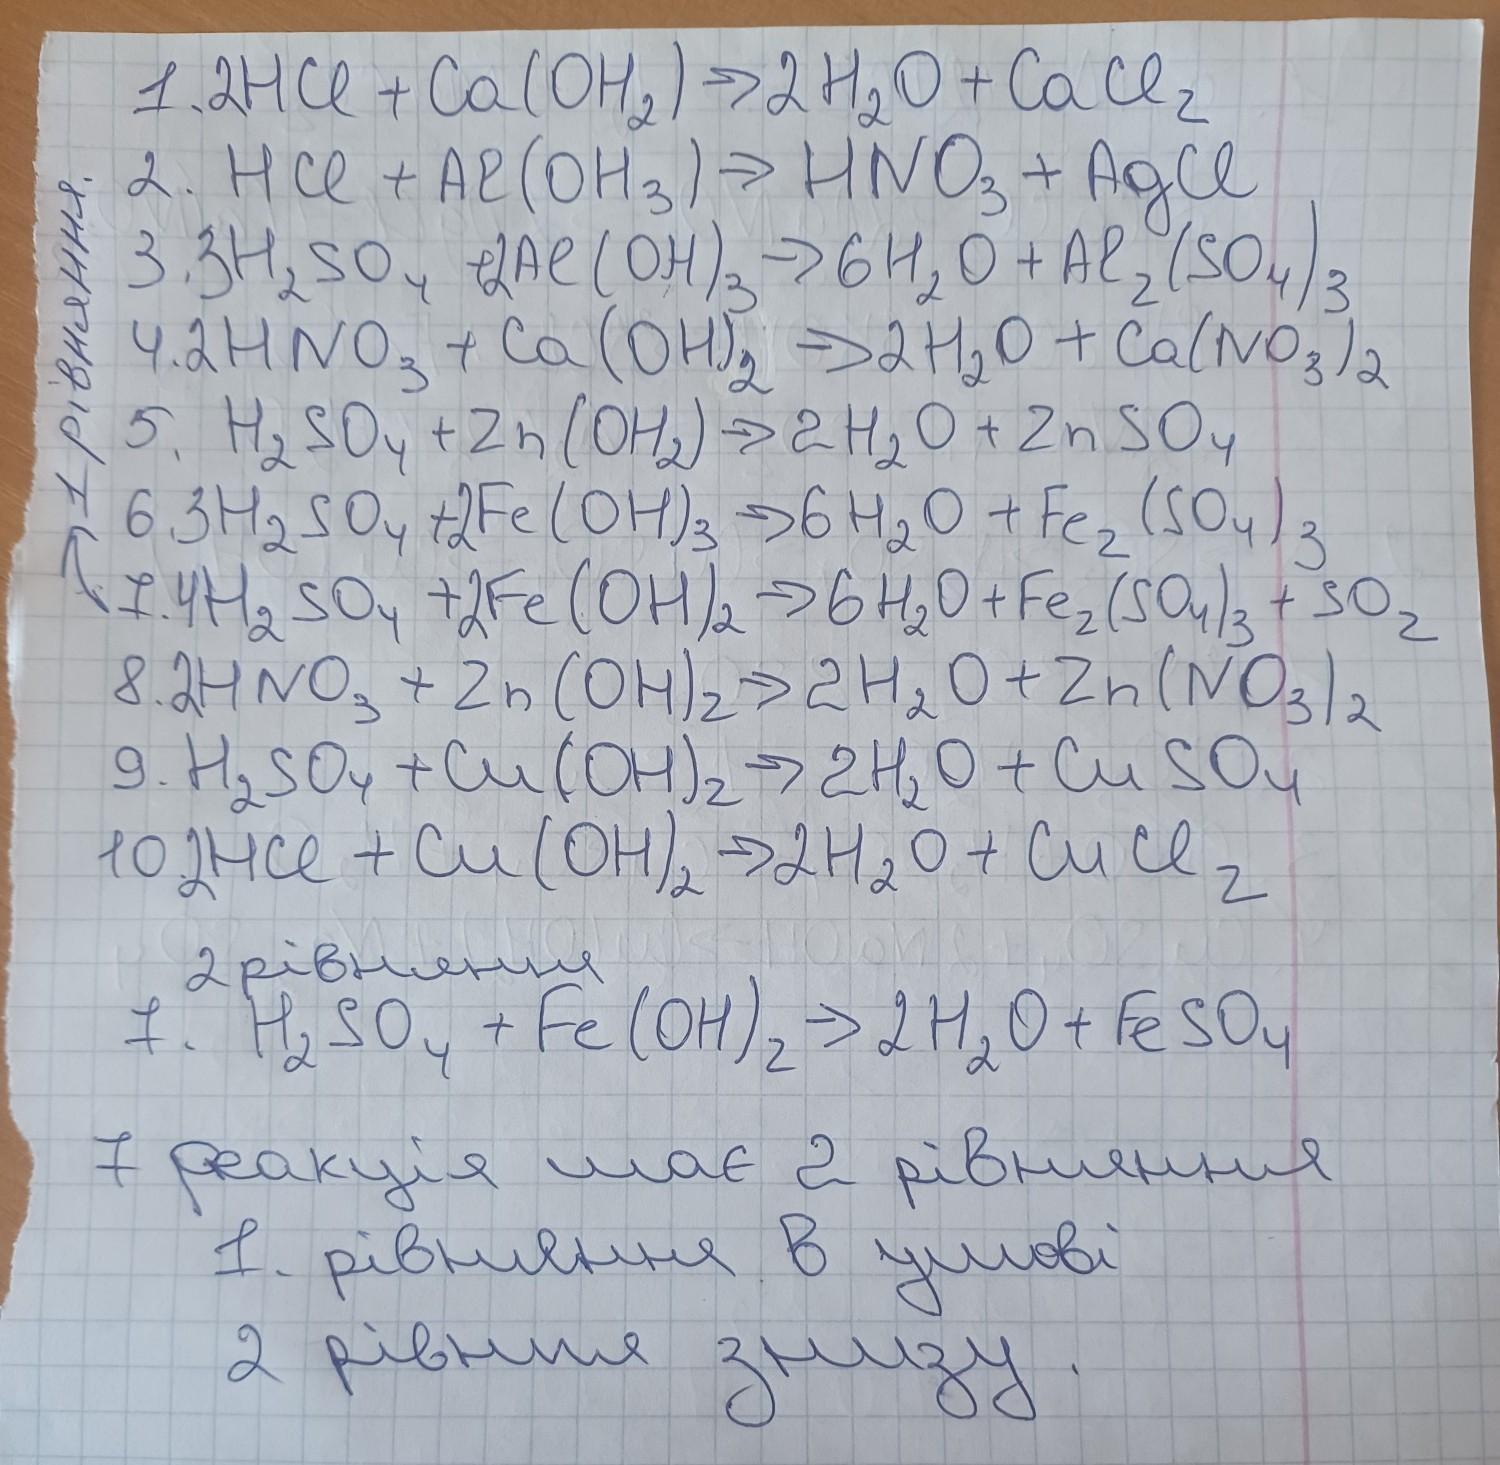 1. 2HCl + Ca(OH₂) → 2H₂O + CaCl₂
2. HCl + Al(OH₃) → HNO₃ + AgCl
3. 3H₂SO₄ + 2Al(OH)₃ → 6H₂O + Al₂(SO₄)₃
4. 2HNO₃ + Ca(OH)₂ → 2H₂O + Ca(NO₃)₂
5. H₂SO₄ + Zn(OH₂) → 2H₂O + ZnSO₄
6. 3H₂SO₄ + 2Fe(OH)₃ → 6H₂O + Fe₂(SO₄)₃
1 рівняння.
7. 4H₂SO₄ + 2Fe(OH)₂ → 6H₂O + Fe₂(SO₄)₃ + SO₂
8. 2HNO₃ + Zn(OH)₂ → 2H₂O + Zn(NO₃)₂
9. H₂SO₄ + Cu(OH)₂ → 2H₂O + CuSO₄
10. 2HCl + Cu(OH)₂ → 2H₂O + CuCl₂
2 рівняння
7. H₂SO₄ + Fe(OH)₂ → 2H₂O + FeSO₄
7 реакція має 2 рівняння
1. рівняння в умові
2 рівння знизу.